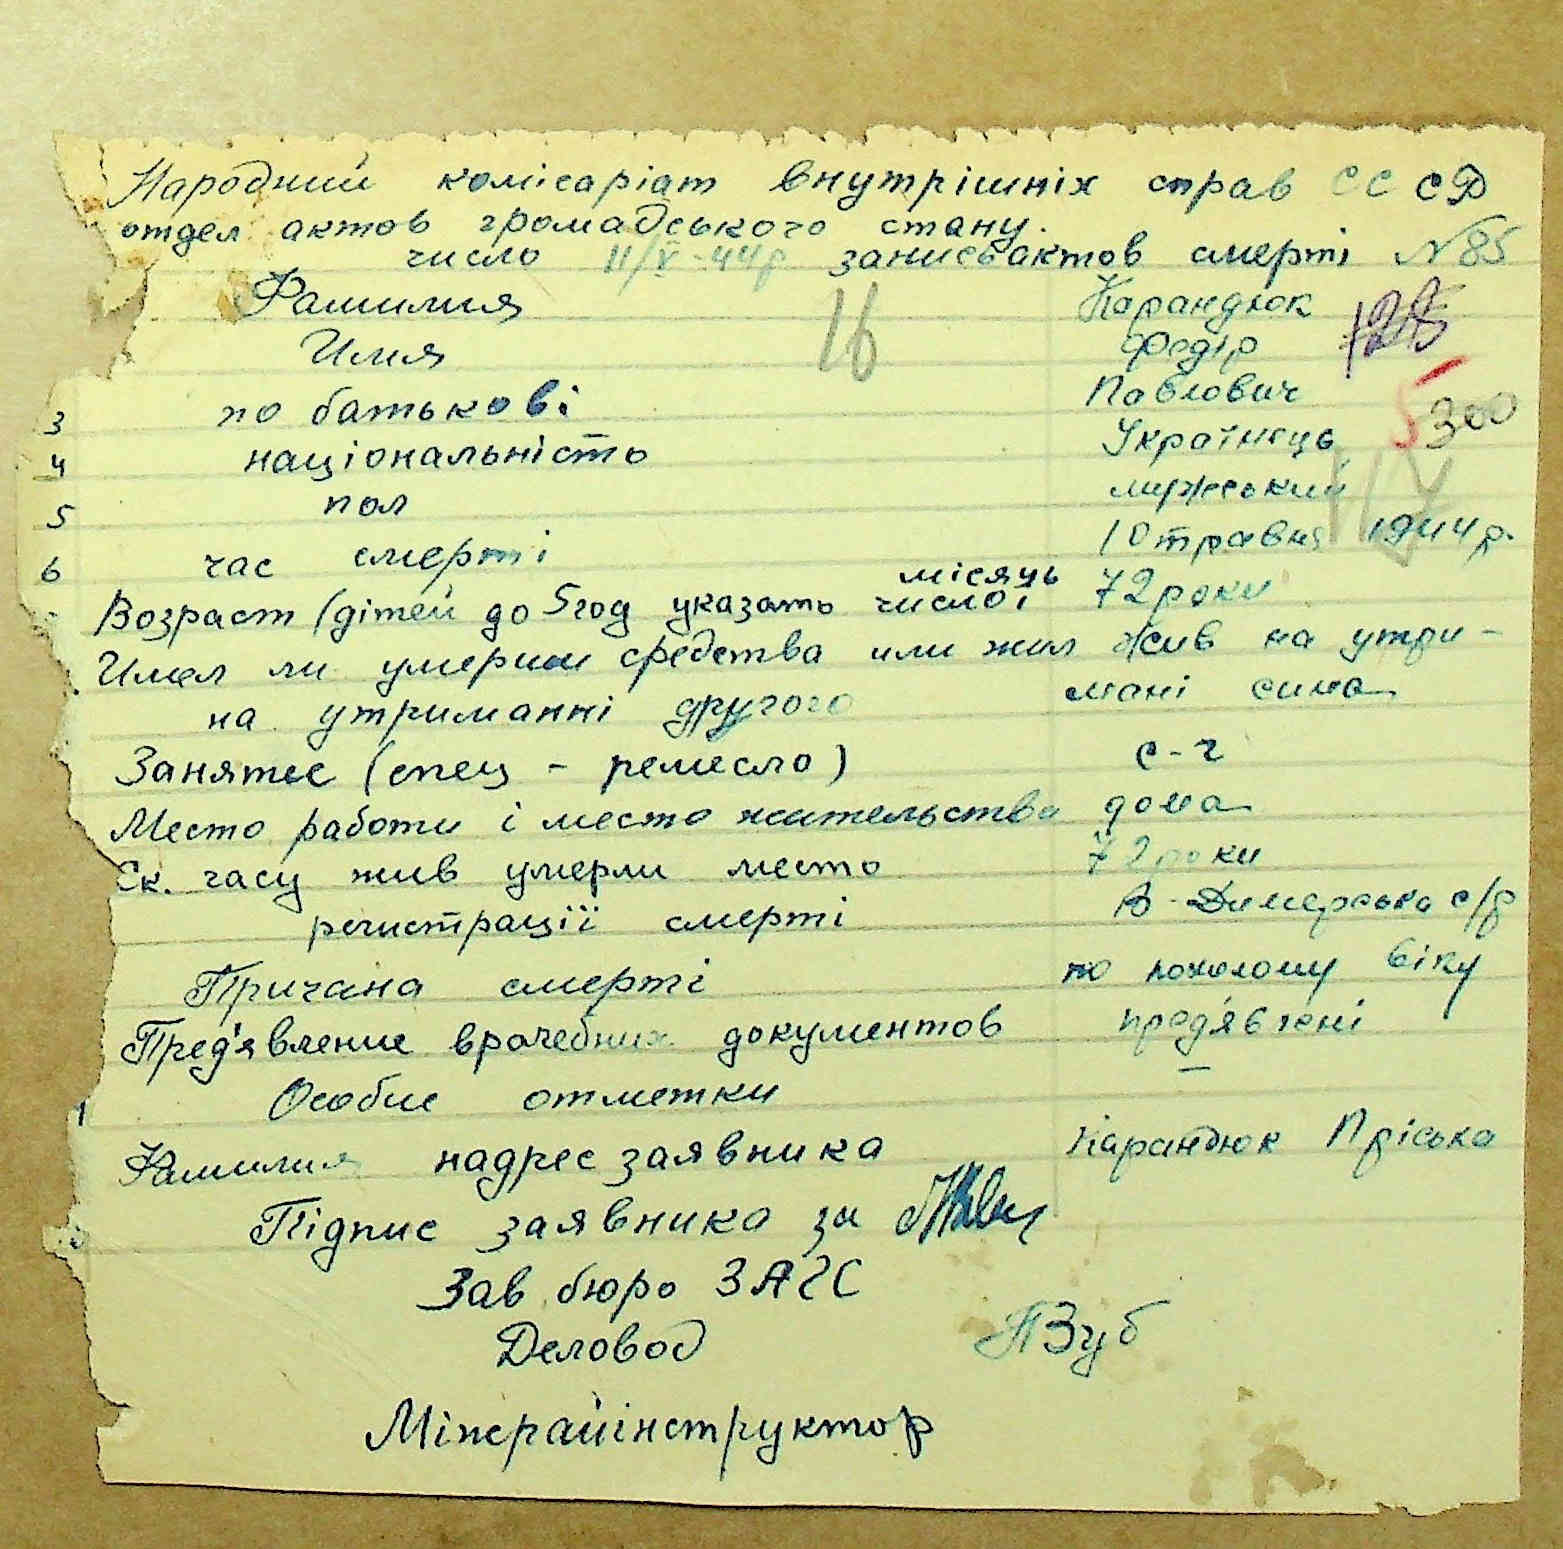 Народний комісаріат внутрішніх справ СССР
отдел актов громадського стану.
число 11/V-44р записьактов смерті N85
Фамилия Карандюк
Имя Федір
16
3 по батькові Павлович
300
4 національність Українець
5 пол мужеський
6 час смерті 10 травня 1944р.
Возраст (дітей до 5год указать число і місяць 72роки
Имел ли умерши средства или жил Жив на утри-
на утриманні другого мані сина
Занятие (спец - ремесло) с-г
Место работи і место жительства дома
Ск. часу жив умерли место 72роки
регистрації смерті В-Димерська с/р
Причина смерті по похилому віку
Пред'явление врачебних документов пред'явлені
1 Особие отметки —
Фамилия надрес заявника Карандюк Пріська
Підпис заявника за
Зав бюро ЗАГС
Деловод ПЗуб